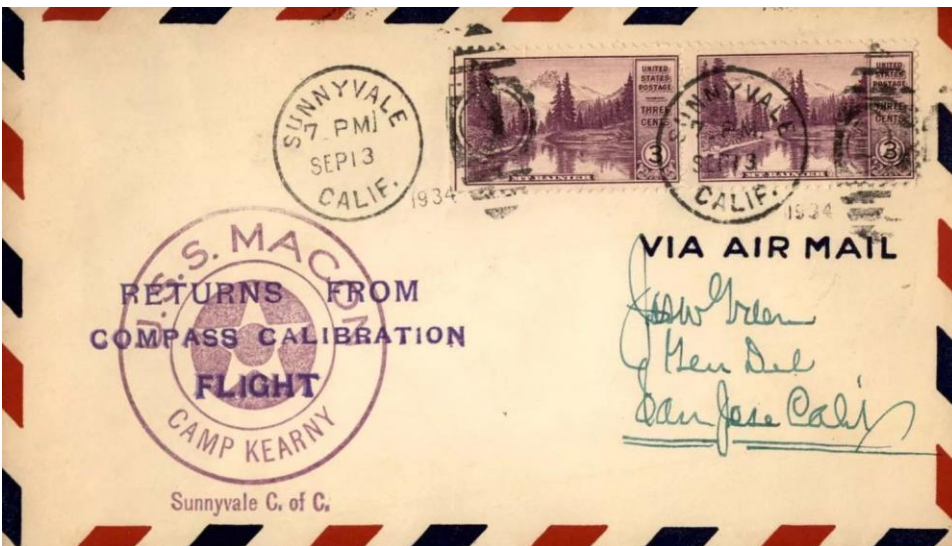 SUNNYVALE
7 PM
SEP 13
CALIF.
1934
UNITED
STATES
POSTAGE
THREE
CENTS
3
MT. RAINIER
SUNNYVALE
7 PM
SEP 13
CALIF.
1934
UNITED
STATES
POSTAGE
THREE
CENTS
3
MT. RAINIER
VIA AIR MAIL
U.S.S. MACON
RETURNS FROM
COMPASS CALIBRATION
FLIGHT
CAMP KEARNY
Sunnyvale C. of C.
Gen Del
San Jose Calif